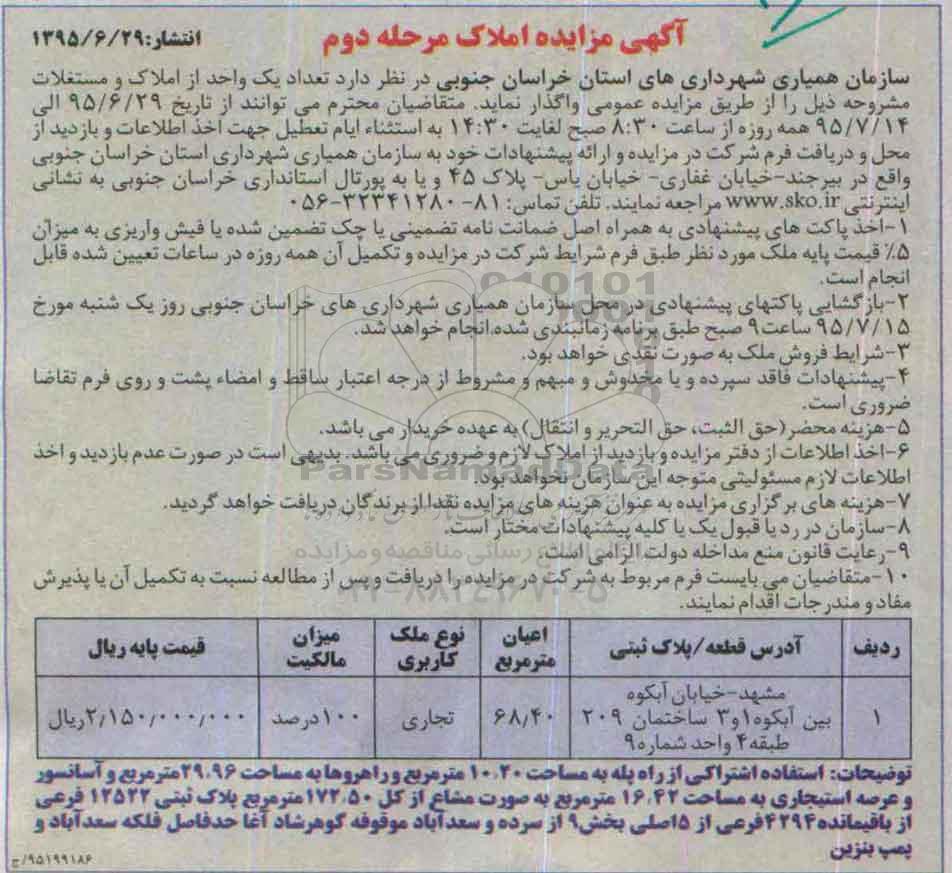 آگهی مزایده املاک مرحله دوم
انتشار: ۱۳۹۵/۶/۲۹
سازمان همیاری شهرداری های استان خراسان جنوبی در نظر دارد تعداد یک واحد از املاک و مستغلات
مشروحه ذیل را از طریق مزایده عمومی واگذار نماید. متقاضیان محترم می توانند از تاریخ ۹۵/۶/۲۹ الی
۹۵/۷/۱۴ همه روزه از ساعت ۸:۳۰ صبح لغایت ۱۴:۳۰ به استثناء ایام تعطیل جهت اخذ اطلاعات و بازدید از
محل و دریافت فرم شرکت در مزایده و ارائه پیشنهادات خود به سازمان همیاری شهرداری استان خراسان جنوبی
واقع در بیرجند-خیابان غفاری- خیابان یاس- پلاک ۴۵ و یا به پورتال استانداری خراسان جنوبی به نشانی
اینترنتی www.sko.ir مراجعه نمایند. تلفن تماس: ۸۱- ۳۲۳۴۱۲۸۰-۰۵۶
۱-اخذ پاکت های پیشنهادی به همراه اصل ضمانت نامه تضمینی یا چک تضمین شده یا فیش واریزی به میزان
۵٪ قیمت پایه ملک مورد نظر طبق فرم شرایط شرکت در مزایده و تکمیل آن همه روزه در ساعات تعیین شده قابل
انجام است.
۲-بازگشایی پاکتهای پیشنهادی در محل سازمان همیاری شهرداری های خراسان جنوبی روز یک شنبه مورخ
۹۵/۷/۱۵ ساعت ۹ صبح طبق برنامه زمانبندی شده انجام خواهد شد.
۳-شرایط فروش ملک به صورت نقدی خواهد بود.
۴-پیشنهادات فاقد سپرده و یا مخدوش و مبهم و مشروط از درجه اعتبار ساقط و امضاء پشت و روی فرم تقاضا
ضروری است.
۵-هزینه محضر(حق الثبت، حق التحریر و انتقال) به عهده خریدار می باشد.
۶-اخذ اطلاعات از دفتر مزایده و بازدید از املاک لازم و ضروری می باشد. بدیهی است در صورت عدم بازدید و اخذ
اطلاعات لازم مسئولیتی متوجه این سازمان نخواهد بود.
۷-هزینه های برگزاری مزایده به عنوان هزینه های مزایده نقدا از برندگان دریافت خواهد گردید.
۸-سازمان در رد یا قبول یک یا کلیه پیشنهادات مختار است.
۹-رعایت قانون منع مداخله دولت الزامی است.
۱۰-متقاضیان می بایست فرم مربوط به شرکت در مزایده را دریافت و پس از مطالعه نسبت به تکمیل آن یا پذیرش
مفاد و مندرجات اقدام نمایند.
ردیف آدرس قطعه/پلاک ثبتی اعیان مترمربع نوع ملک کاربری میزان مالکیت قیمت پایه ریال
۱ مشهد-خیابان آبکوه
بین آبکوه۱و۳ ساختمان ۲۰۹ ۶۸٫۴۰ تجاری ۱۰۰درصد ۲٫۱۵۰٫۰۰۰٫۰۰۰ریال
طبقه۴ واحد شماره۹
توضیحات: استفاده اشتراکی از راه پله به مساحت ۱۰.۲۰ مترمربع و راهروها به مساحت ۲۹.۹۶مترمربع و آسانسور
و عرصه استیجاری به مساحت ۱۶.۴۲ مترمربع به صورت مشاع از کل ۱۷۲.۵۰مترمربع پلاک ثبتی ۱۲۵۲۲ فرعی
از باقیمانده۴۲۹۴فرعی از ۵اصلی بخش۹ از سرده و سعدآباد موقوفه گوهرشاد آغا حدفاصل فلکه سعدآباد و
پمپ بنزین
۹۵۱۹۹۱۸۶/ج
ParsNamadData